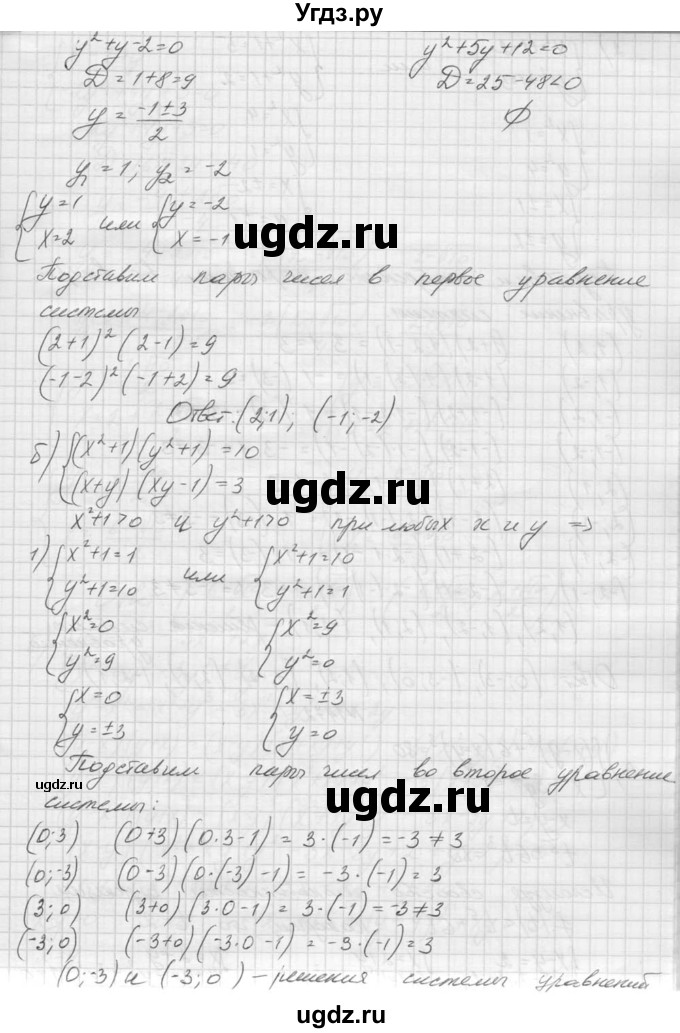 Угдз.ру
y²+y-2=0
y²+5y+12=0
D=1+8=9
D=25-48<0
y = (-1±3)/2
∅
y₁=1; y₂=-2
{y=1 или {y=-2
{x=2 {x=-1
ugdz.ru
Подставим пары чисел в первое уравнение
системы
(2+1)²(2-1)=9
(-1-2)²(-1+2)=9
Ответ.(2;1); (-1;-2)
б) {(x²+1)(y²+1)=10
{(x+y)(xy-1)=3
ugdz.ru
x²+1>0 и y²+1>0 при любых x и y =>
1) {x²+1=1 или {x²+1=10
{y²+1=10 {y²+1=1
{x²=0 {x²=9
{y²=9 {y²=0
{x=0 {x=±3
{y=±3 {y=0
Подставим пары чисел во второе уравнение
ugdz.ru
ugdz.ru
системы:
(0;3) (0+3)(0·3-1)=3·(-1)=-3≠3
(0;-3) (0-3)(0·(-3)-1)=-3·(-1)=3
(3;0) (3+0)(3·0-1)=3·(-1)=-3≠3
(-3;0) (-3+0)(-3·0-1)=-3·(-1)=3
(0;-3) и (-3;0) - решения системы уравнений
ugdz.ru